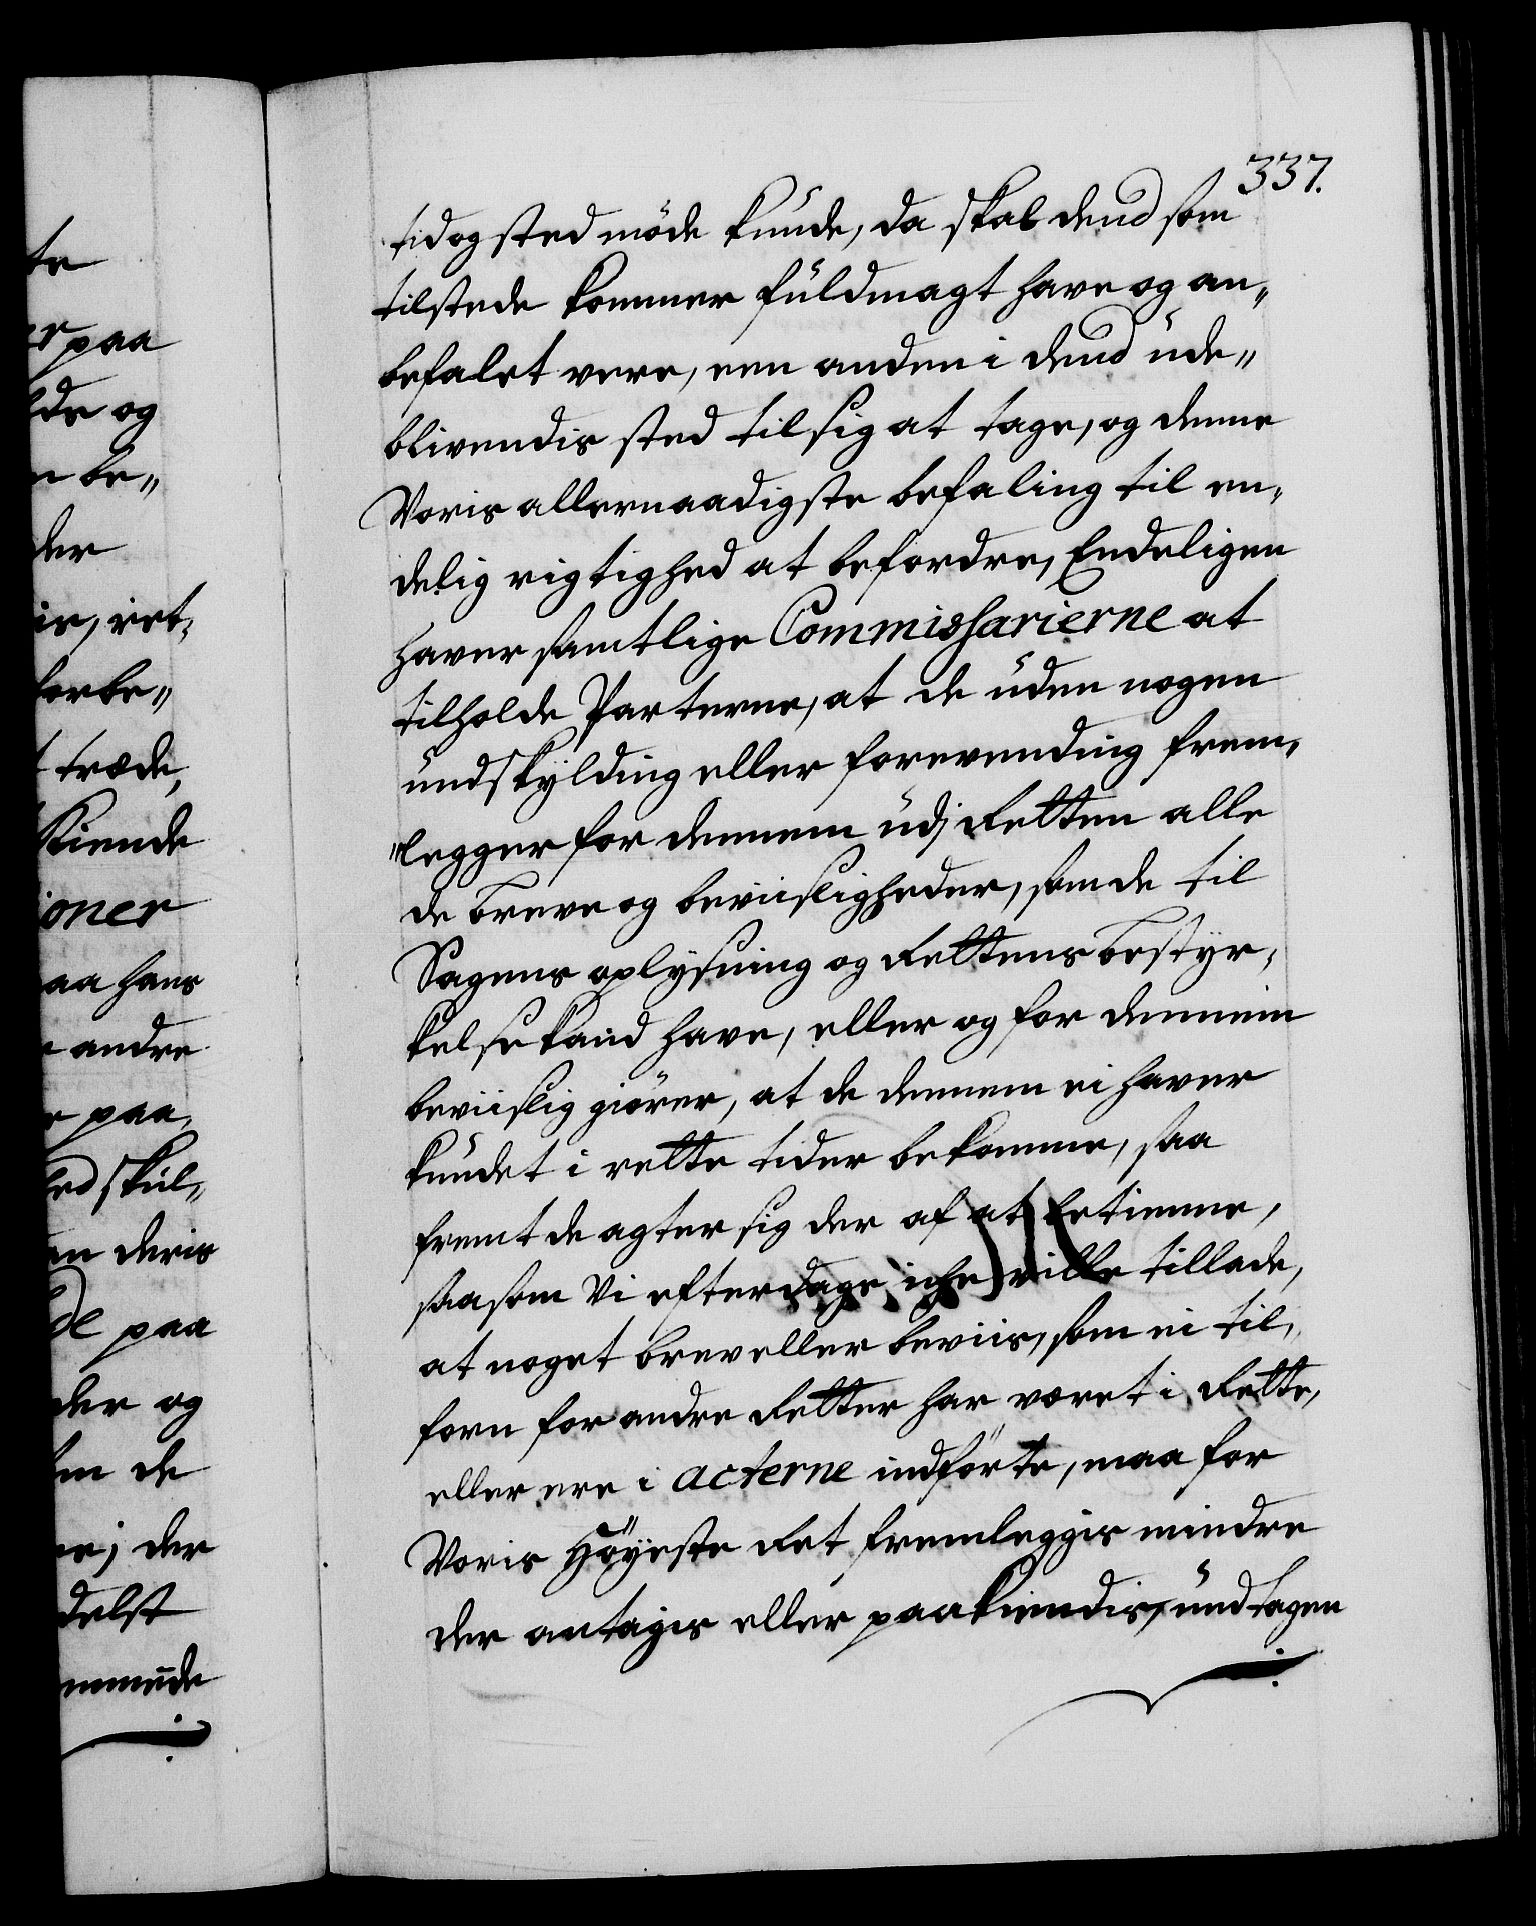 337.
tid og sted möde kunde, da skal dend som
tilstede kommer fuldmagt have og an„
befalet vere, een anden i dend ude„
blivendis sted til sig at tage, og denne
Voris allernaadigste befaling til en„
delig rigtighed at befordre, Endeligen
haver samtlige Commissarierne at
tilholde Parterne, at de uden nogen
undskÿlding eller forevending frem„
„legger for dennem udj Retten alle
de breve og beviisligheder, som de til
Sagens oplÿsning og Rettens bestÿr„
kelse kand have, eller og for dennem
beviislig giörer, at de dennem ei haver
kundet i rette tider bekomme, saa
fremt de agter sig der af at betienne,
saasom Vi efterdags iche ville tillade,
at noget brev eller beviis, som ei til„
forn for andre Retter har været i Rette,
eller ere i acterne indförte, maa for
Voris Höÿeste Ret fremleggis mindre
der antagis eller paakiendis, undtagen
te
er paa
lde og
n be„
der
is, ret„
forbe„
t træde,
kiende
ioner
aa hans
e andre
e paa,
ed skul„
en deris
de paa
der og
em de
e; der
delst
ommunde